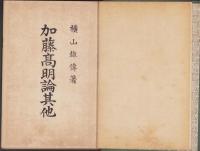 横山雄偉著
加藤高明論其他